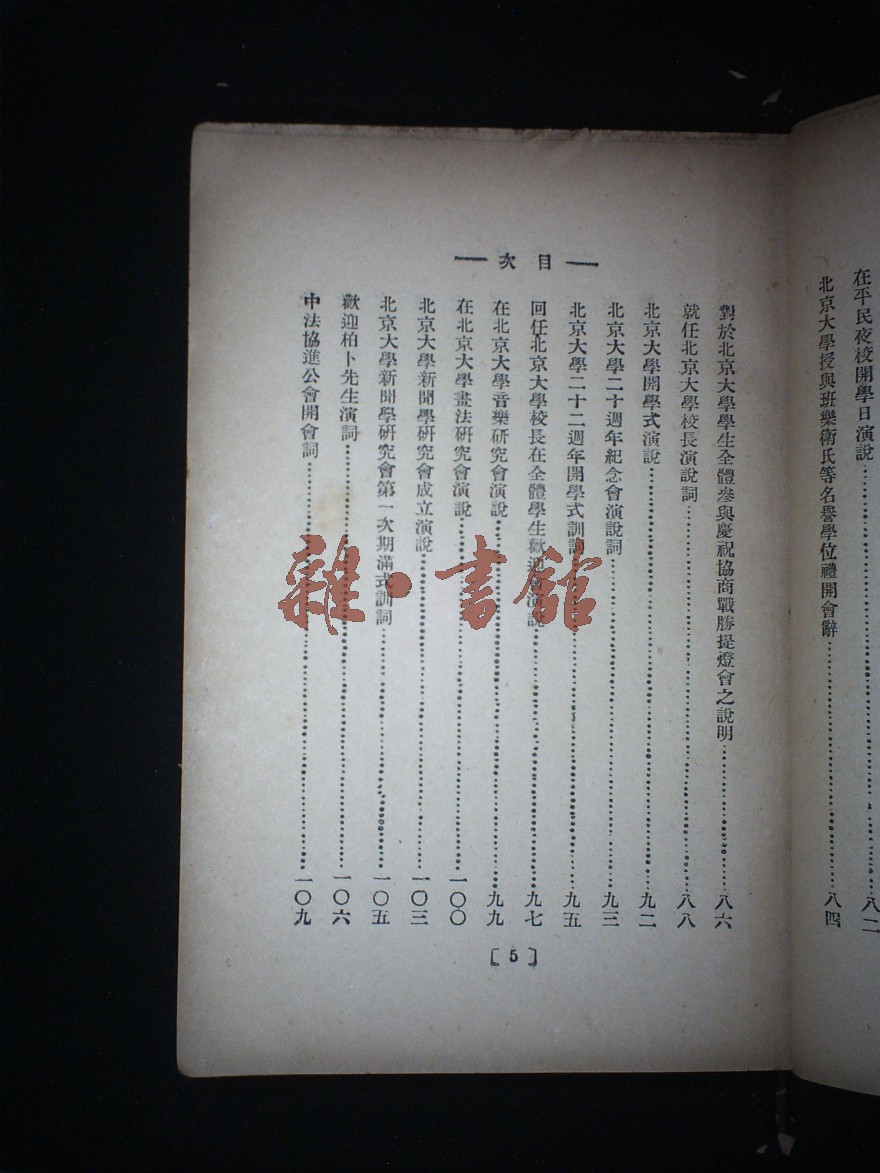 在平民夜校開學日演說……八二
北京大學授與班樂衛氏等名譽學位禮開會辭……八四
目次
對於北京大學學生全體參與慶祝協商戰勝提燈會之說明……八六
就任北京大學校長演說詞……八八
北京大學開學式演說……九二
北京大學二十週年紀念會演說詞……九三
北京大學二十二週年開學式訓詞……九五
回任北京大學校長在全體學生歡迎會演說……九七
在北京大學音樂研究會演說……九九
在北京大學畫法研究會演說……一〇〇
北京大學新聞學研究會成立演說……一〇三
北京大學新聞學研究會第一次期滿式訓詞……一〇五
歡迎柏卜先生演詞……一〇六
中法協進公會開會詞……一〇九
〔5〕
雜·書館